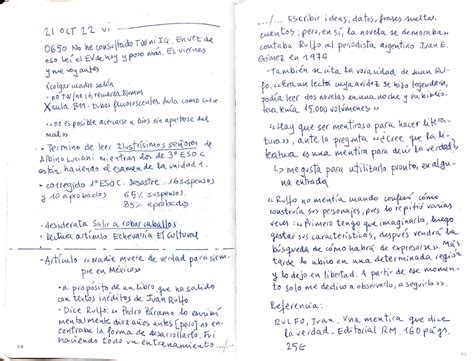 21 OCT 22 vi
0650 No he consultado TW ni IG. En vez de
eso leí el EV de hoy y poco más. Es viernes
y me voy antes
colgar cuadro salón
- no TW/no IG, recuerda
Aula B11 - tubos fluorescentes. Aula como
«no es posible acercarse a Dios sin apartarse del
mal»
- Termino de leer Ilustrísimos señores de
Albino Luciani mientras los de 3º ESO C
están haciendo el examen de la unidad 1.
- corregido 1º ESO C. Desastre. 16 suspensos
y 10 aprobados 65% suspensos.
85% aprobados
- desiderata Salir a robar caballos
- lectura artículo Echevarría El Cultural
- Artículo «Nadie muere de verdad para siem-
pre en México»
- a propósito de un libro que ha salido
con textos inéditos de Juan Rulfo
- Dice Rulfo: «Pedro Páramo lo escribí
mentalmente diez años antes [pero] no en-
contraba la forma de desarrollarlo. Fui
haciendo todo un entrenamiento .../...
.../... Escribir ideas, datos, frases sueltas,
cuentos; pero, en sí, la novela se demoraba»
contaba Rulfo al periodista argentino Juan E.
Gómez en 1979
- También se cita la voracidad de Juan Rul-
fo, «era un lector cuya avidez se hizo legendaria,
podía leer dos novelas en una noche y su bibliote-
ca tenía 15.000 volúmenes»
- «Hay que ser mentiroso para hacer litera-
tura», ante la pregunta «¿Cree que la li-
teratura es una mentira para decir la verdad?»
↳ me gusta para utilizarlo pronto, en algu-
na entrada
- «Rulfo no mentía cuando confesó cómo
construía sus personajes, pero lo repitió varias
veces: «Primero tengo que imaginarlo, luego
gestar sus características, después vendrá la
búsqueda de cómo habrá de expresarse». Más
tarde lo ubico en una determinada región
y lo dejo en libertad. A partir de ese momen-
to solo me dedico a observarlo, a seguirlo».
Referencia:
RULFO, Juan. Una mentira que dice
la verdad. Editorial RM. 160 págs.
25€